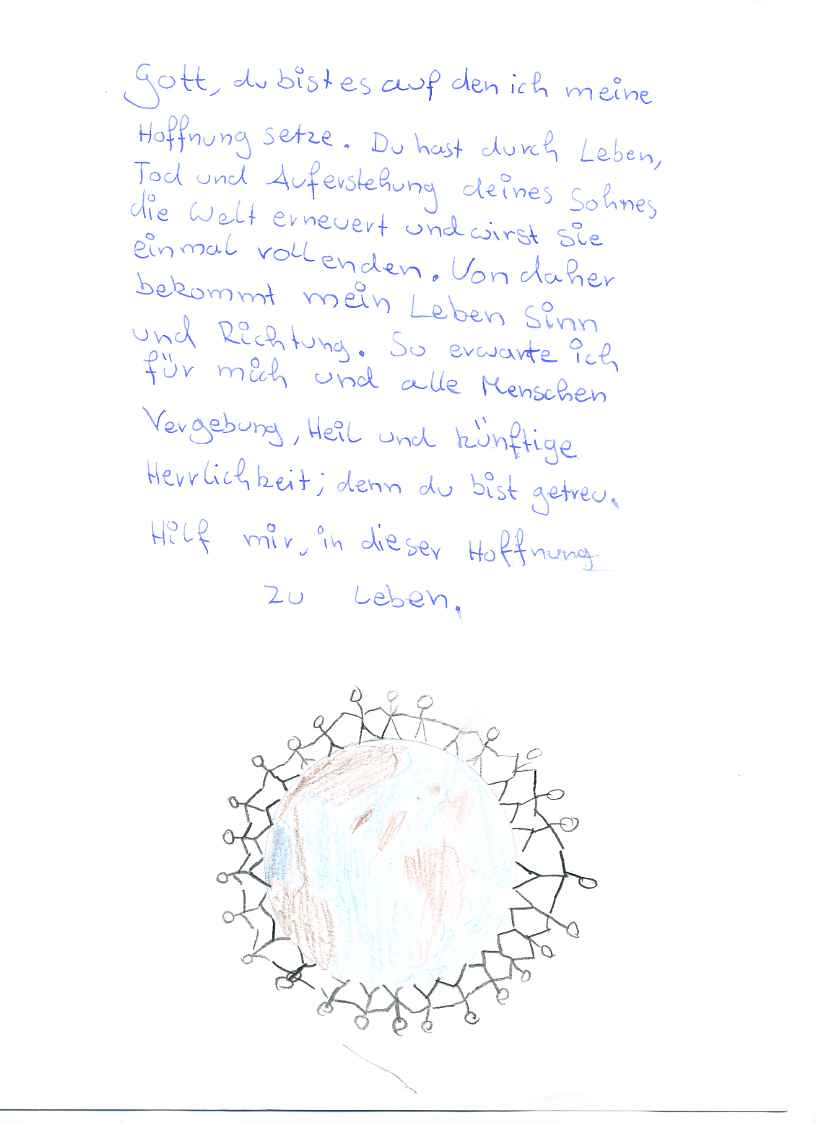 Gott, du bist es auf den ich meine
Hoffnung setze. Du hast durch Leben,
Tod und Auferstehung deines Sohnes
die Welt erneuert und wirst sie
einmal vollenden. Von daher
bekommt mein Leben Sinn
und Richtung. So erwarte ich
für mich und alle Menschen
Vergebung, Heil und künftige
Herrlichkeit; denn du bist getreu.
Hilf mir, in dieser Hoffnung
zu Leben.